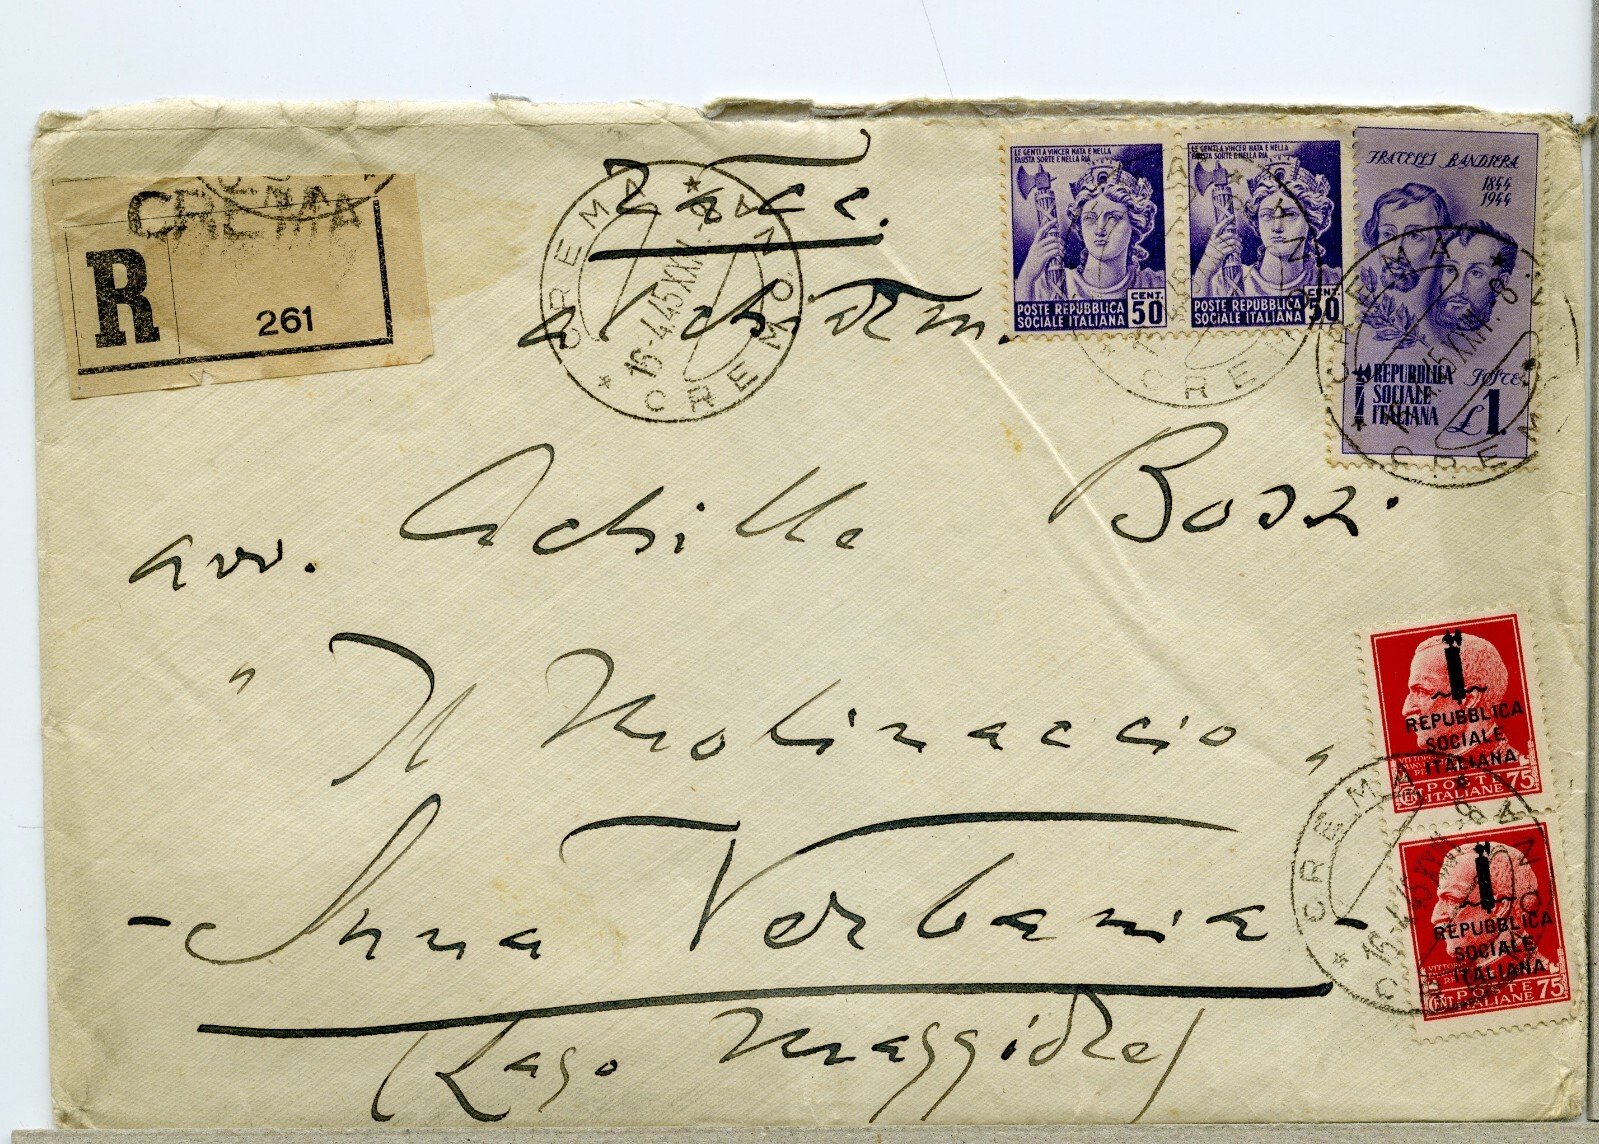 CREMA
R
261
Racc.
CREMA
16.4.45 XXIII
CREMONA
LE GENTI A VINCER NATA E NELLA
FAUSTA SORTE E NELLA RIA
POSTE REPUBBLICA
SOCIALE ITALIANA
CENT.
50
LE GENTI A VINCER NATA E NELLA
FAUSTA SORTE E NELLA RIA
POSTE REPUBBLICA
SOCIALE ITALIANA
CENT.
50
FRATELLI BANDIERA
1844
1944
REPUBBLICA
SOCIALE
ITALIANA
POSTE
£1.
CREMA
CREMONA
avv. Achille Bossi.
" Il Molinaccio "
- Intra Verbania -
(Lago Maggiore)
REPUBBLICA
SOCIALE
ITALIANA
POSTE
ITALIANE
CENT
75
REPUBBLICA
SOCIALE
ITALIANA
POSTE
ITALIANE
CENT
75
CREMA
16.4.45 XXIII